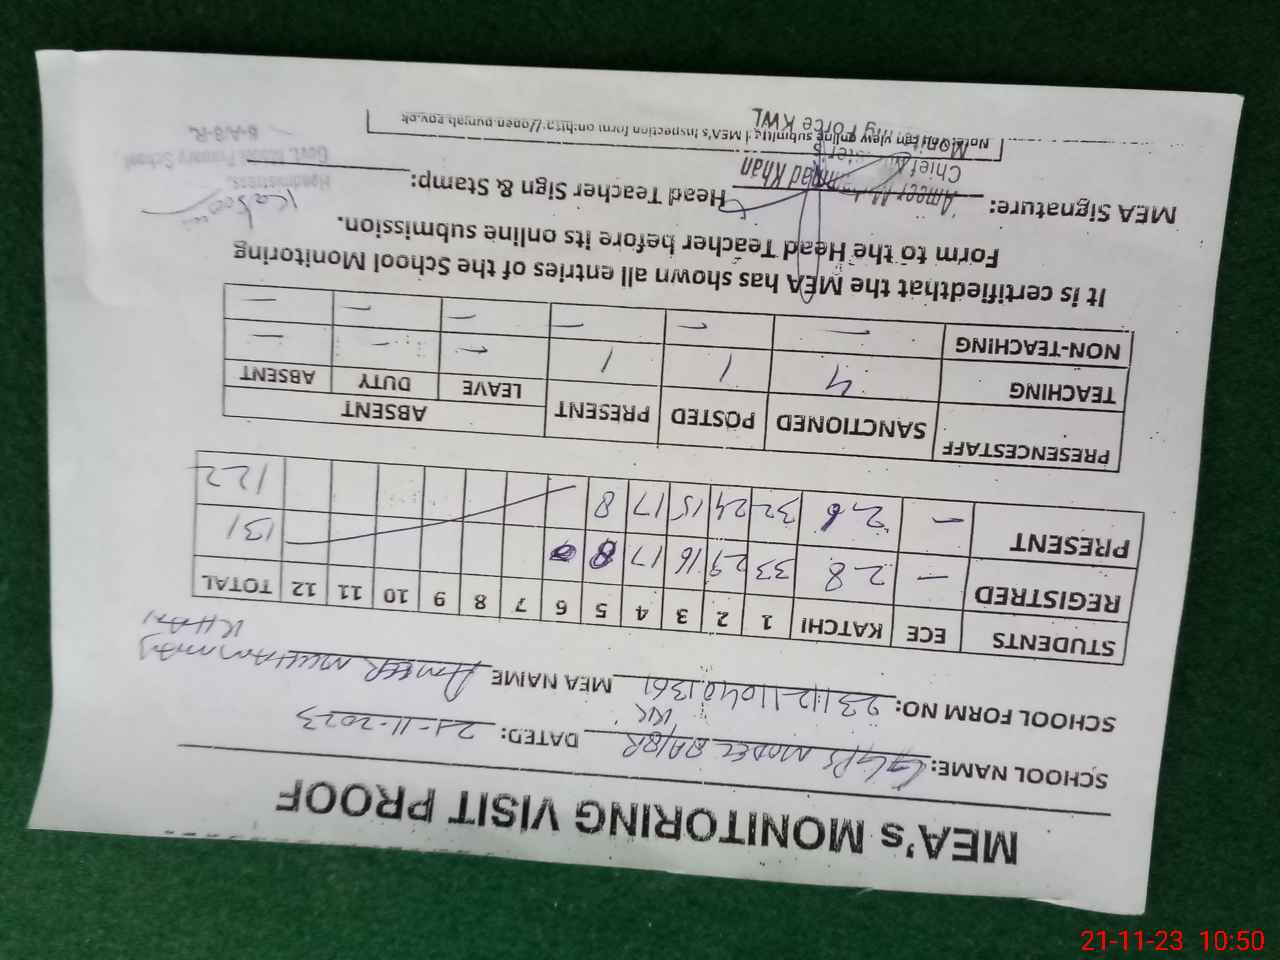 MEA's MONITORING VISIT PROOF
SCHOOL NAME: GGPS MODEL 8A/8R DATED: 21-11-2023
KK
SCHOOL FORM NO: MEA NAME AMEER MUHAMMAD
KHAN
STUDENTS ECE KATCHI 1 2 3 4 5 6 7 8 9 10 11 12 TOTAL
REGISTRED — 28 33 29 16 17 8 131
PRESENT — 26 32 24 15 17 8 122
PRESENCESTAFF SANCTIONED POSTED PRESENT ABSENT
LEAVE DUTY ABSENT
TEACHING 4 1 1 — — —
NON-TEACHING — — — — — —
It is certifiedthat the MEA has shown all entries of the School Monitoring
Form to the Head Teacher before its online submission.
MEA Signature: Head Teacher Sign & Stamp:
Ameer Khan
Chief
Force KWL
Headmistress,
Govt. Model Primary School
8-A-8-R.
Note: can view online submitted MEA's Inspection form on:http://open.punjab.gov.pk
21-11-23 10:50